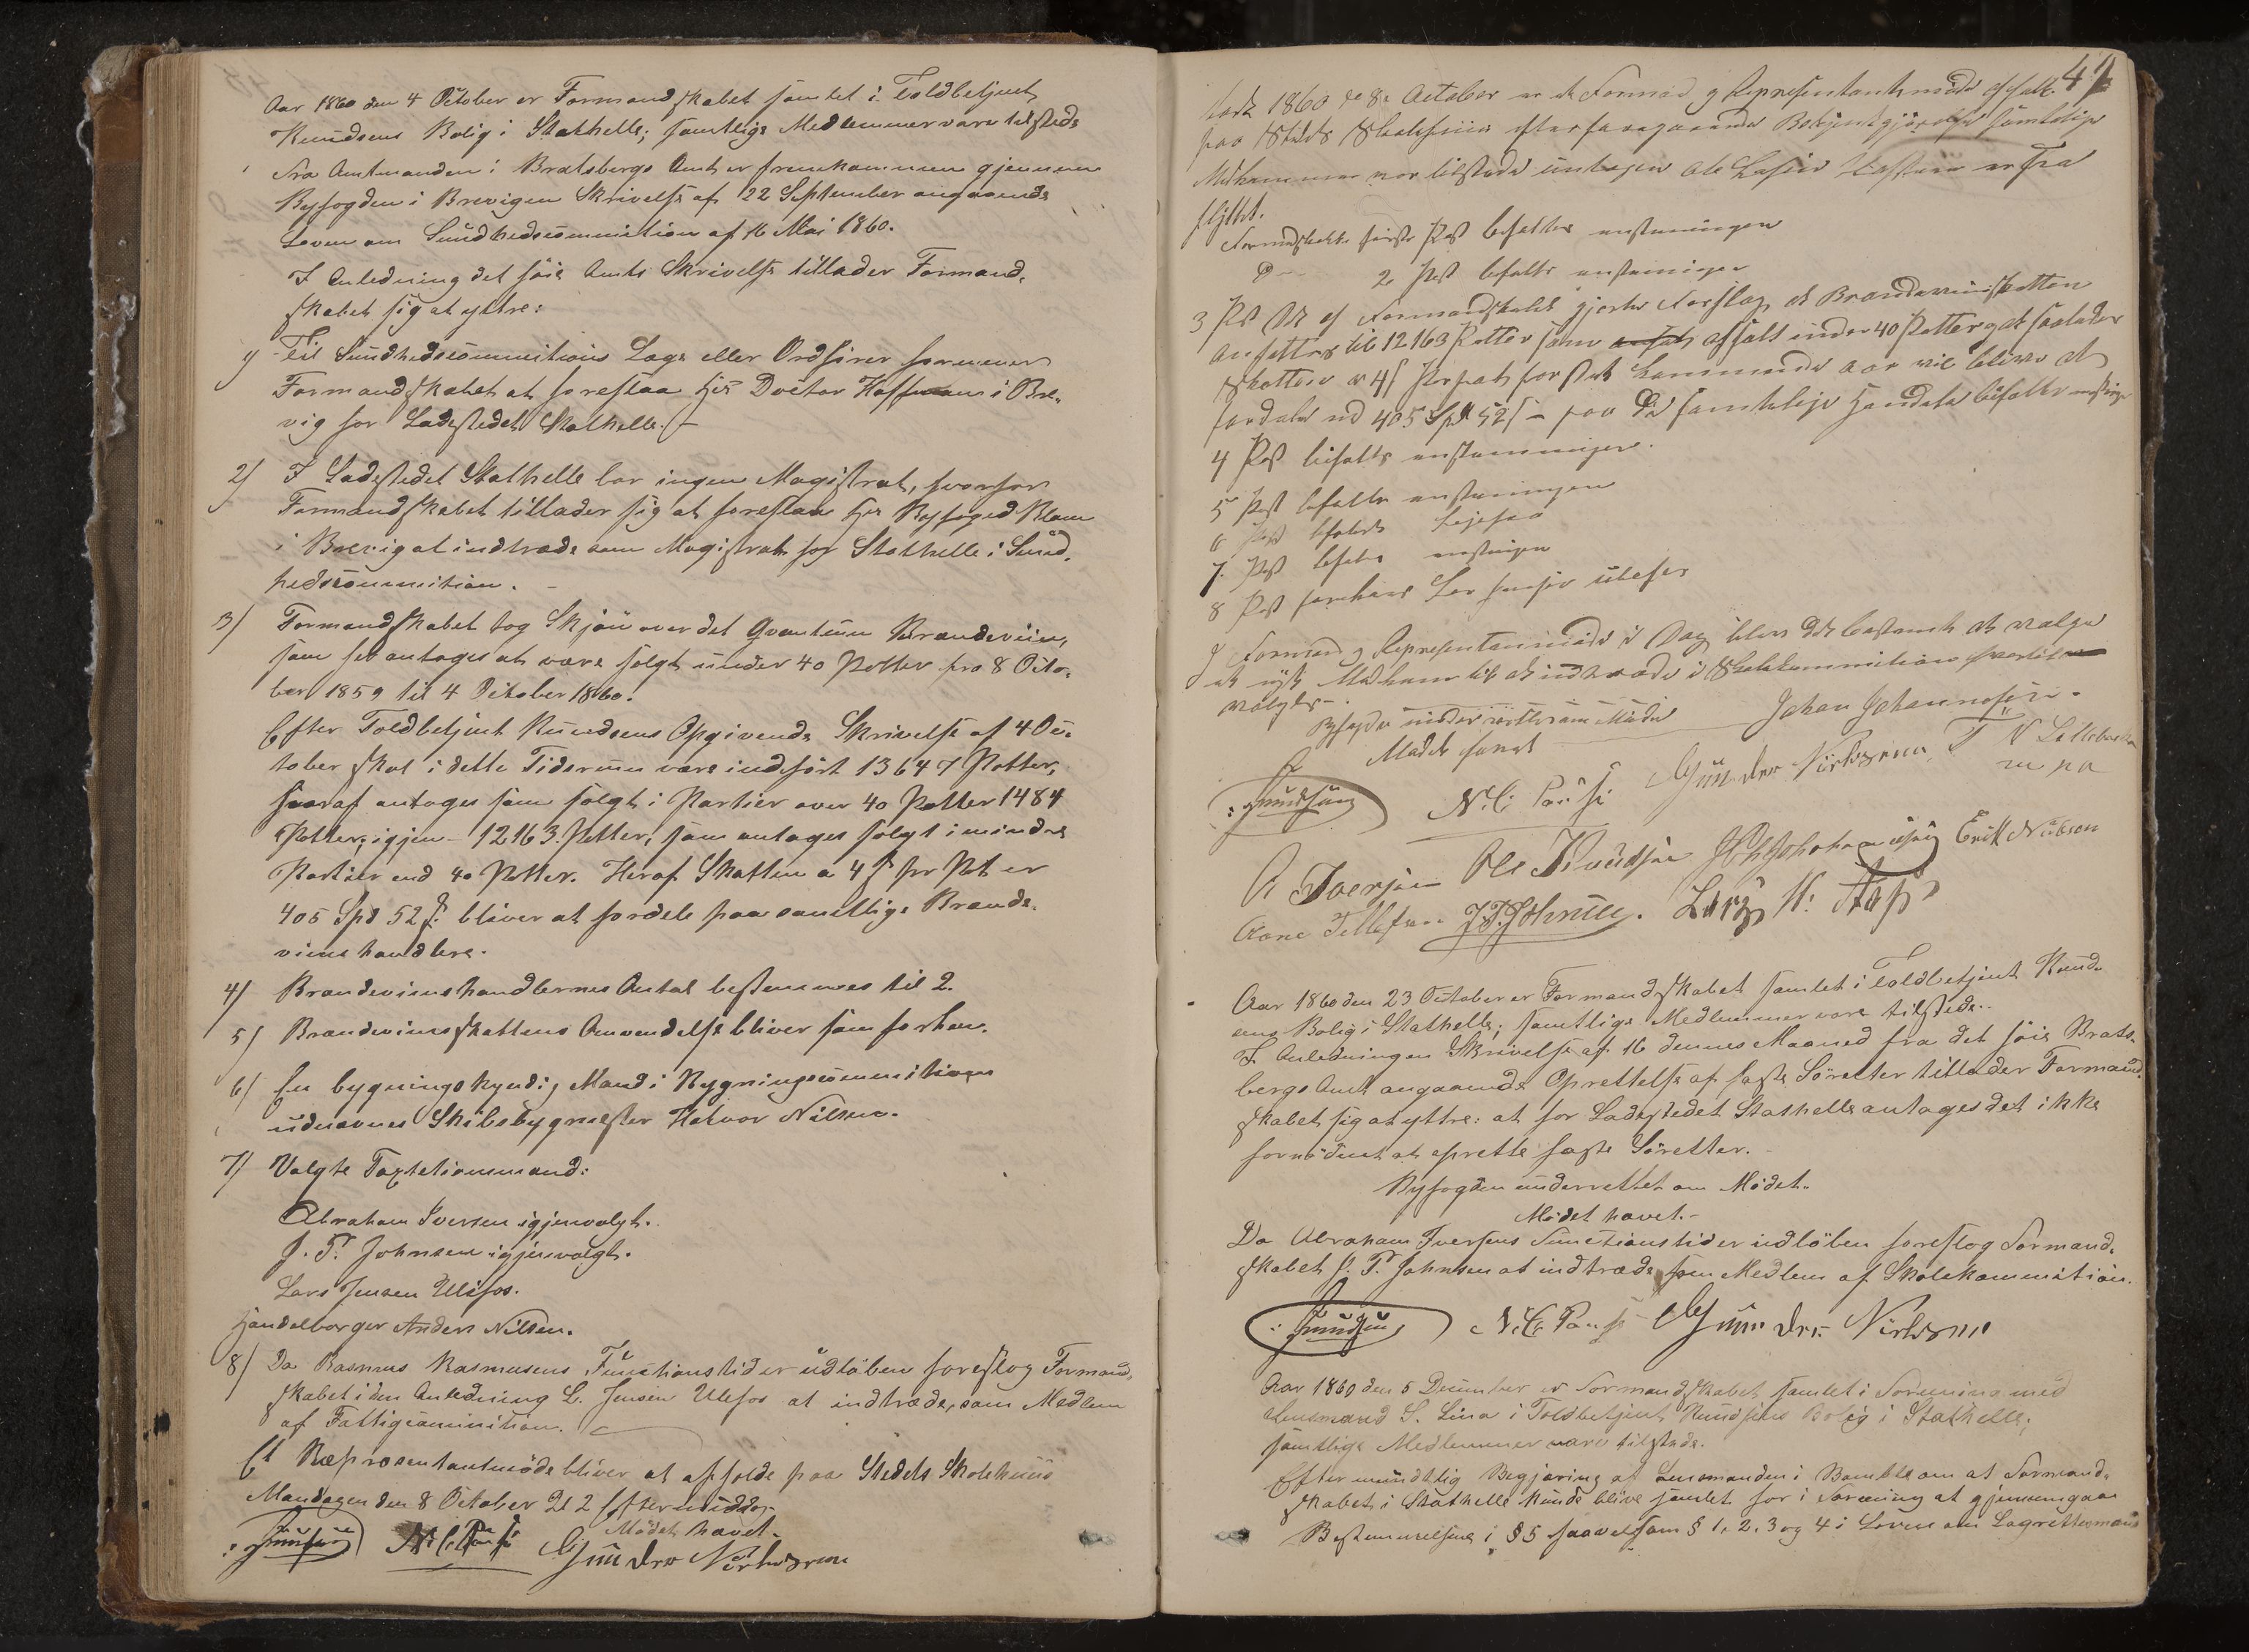 Aar 1860 den 4 October er Formandskabet samlet i Toldbetjent
Knudsens Bolig i Stathelle; samtlige Medlemmer vare tilstede
Fra Amtmanden i Bratsbergs Amt er fremkommen gjennem
Byfogden i Brevigen Skrivelse af 22 September angaaende
Loven om Sundhedscommition af 16 Mai 1860.
I Anledning det høie Amts Skrivelse tillader Formand-
skabet sig at yttre:
1) Til Sundhedscommitions Lage eller Ordfører formener
Formandskabet at foreslaa Hr Doctor Hoffmann i Bre-
vig for Ladestedet Stathelle.
2) I Ladestedet Stathelle bor ingen Magistrat, hvorfor
Formandskabet tillader sig at foreslaa Hr Byfoged Blom
i Brevig at indtræde som Magistrat for Stathelle i Sund-
hedscommition.
3) Formandskabet tog Skjøn over det Qvantum Brændeviin,
som her antages at være solgt under 40 Potter fra 8 Octo-
ber 1859 til 4 October 1860.
Efter Toldbetjent Knudsens Opgivende Skrivelse af 4 Oc-
tober skal i dette Tidsrum være indført 13647 Potter,
hvoraf antages som solgt i Partier over 40 Potter 1484
Potter; igjen - 12163 Potter, som antages solgt i mindre
Partier end 40 Potter. Heraf Skatten a 4 ß pr Pot er
405 Spd 52 ß. bliver at fordele paa samtlige Brænde-
viinshandlere.
4) Brændeviinshandlernes Antal bestemmes til 2.
5) Brændeviinsskattens Anvendelse bliver som forhen.
6) En bygningskyndig Mand i Bygningscommitionen
udnævnes Skibsbygmester Halvor Nilsen.
7) Valgte Taxtationsmænd:
Abraham Iversen igjenvalgt.
J. T. Johnsen igjenvalgt.
Lars Jensen Ulefos.
Handelborger Anders Nilsen.
8) Da Rasmus Rasmusens Functionstid er udløben foreslog Formand-
skabet i den Anledning L. Jensen Ulefos at indtræde, som Medlem
af Fattigcommition.
Et Repræsentantmøde bliver at afholde paa Stedets Skolehuus
Mandagen den 8 October Kl 2 Eftermiddag.
Mødet hævet.
Knudsen N. C. Paus Gunder Nirisen
47
Aar 1860 den 8 October er et Formand og Repræsentantmøde afholt
paa Stedets Skolehuus efter foregaaende Bekjentgjørelse samtlige
Medlemmer var tilstede undtagen Ole Larsen er fra
flyttet.
Formandskabets første Post befattes enstemmigen
Do 2 Post befattes enstemmigen
3 Post Det af Formandskabet gjorte Forslag at Brændeviinsskatten
ansettes til 12163 Potter som afsatt under 40 Potter og at saaledes
Skatten a 4 ß pr pot for det kommende aar vil blive at
fordele med 405 Spd 52 ß paa de samtelige Handele bifattes enstemmig
4 Post bifattes enstemmigen.
5 Post befattes enstemmigen
6 Post befattes ligesaa
7 Post befattes enstemmigen
8 Post forehaves Lars Jensen Ulefos
I Formand og Repræsentantmøde i Dag blev det bestemt at vælge
et nyt Medlem til at indtræde i Skolekommitionen hvortil
valgtes - Johan Johannesen.
Byfogden underrettes om Mødet
Mødet hævet
Knudsen N. C. Paus Gunder Nirisen
m p p
A Iversen Ole Knudsen Erik Nielsen
Aane Tellefsen J. T. Johnsen. Lars N. Aas
Aar 1860 den 23 October er Formandskabet samlet i Toldbetjent Knud-
sens Bolig i Stathelle; samtlige Medlemmer vare tilstede.
I Anledningen Skrivelse af 16 dennes Maaned fra det høie Brats-
bergs Amt angaaende Oprettelse af faste Søretter tillader Formand-
skabet sig at yttre: at for Ladestedet Stathelle antages det ikke
fornødent at oprette faste Søretter.
Byfogden underrettet om Mødet.
Mødet hævet.
Da Abraham Iversens Functionstid er udløben foreslog Formand-
skabet J. T. Johnsen at indtræde som Medlem af Skolekommition.
Knudsen N. C. Paus Gunder Nirisen
Aar 1860 den 5 December er Formandskabet samlet i Forening med
Lensmand S. Lina i Toldbetjent Knudsens Bolig i Stathelle;
samtlige Medlemmer vare tilstede.
Efter mundtlig Begjæring af Lensmanden i Bamble om at Formand-
skabet i Stathelle kunde blive samlet for i Forening at gjennemgaa
Bestemmelsene i § 5 saavelsom § 1, 2, 3 og 4 i Loven om Lagrettesmænd